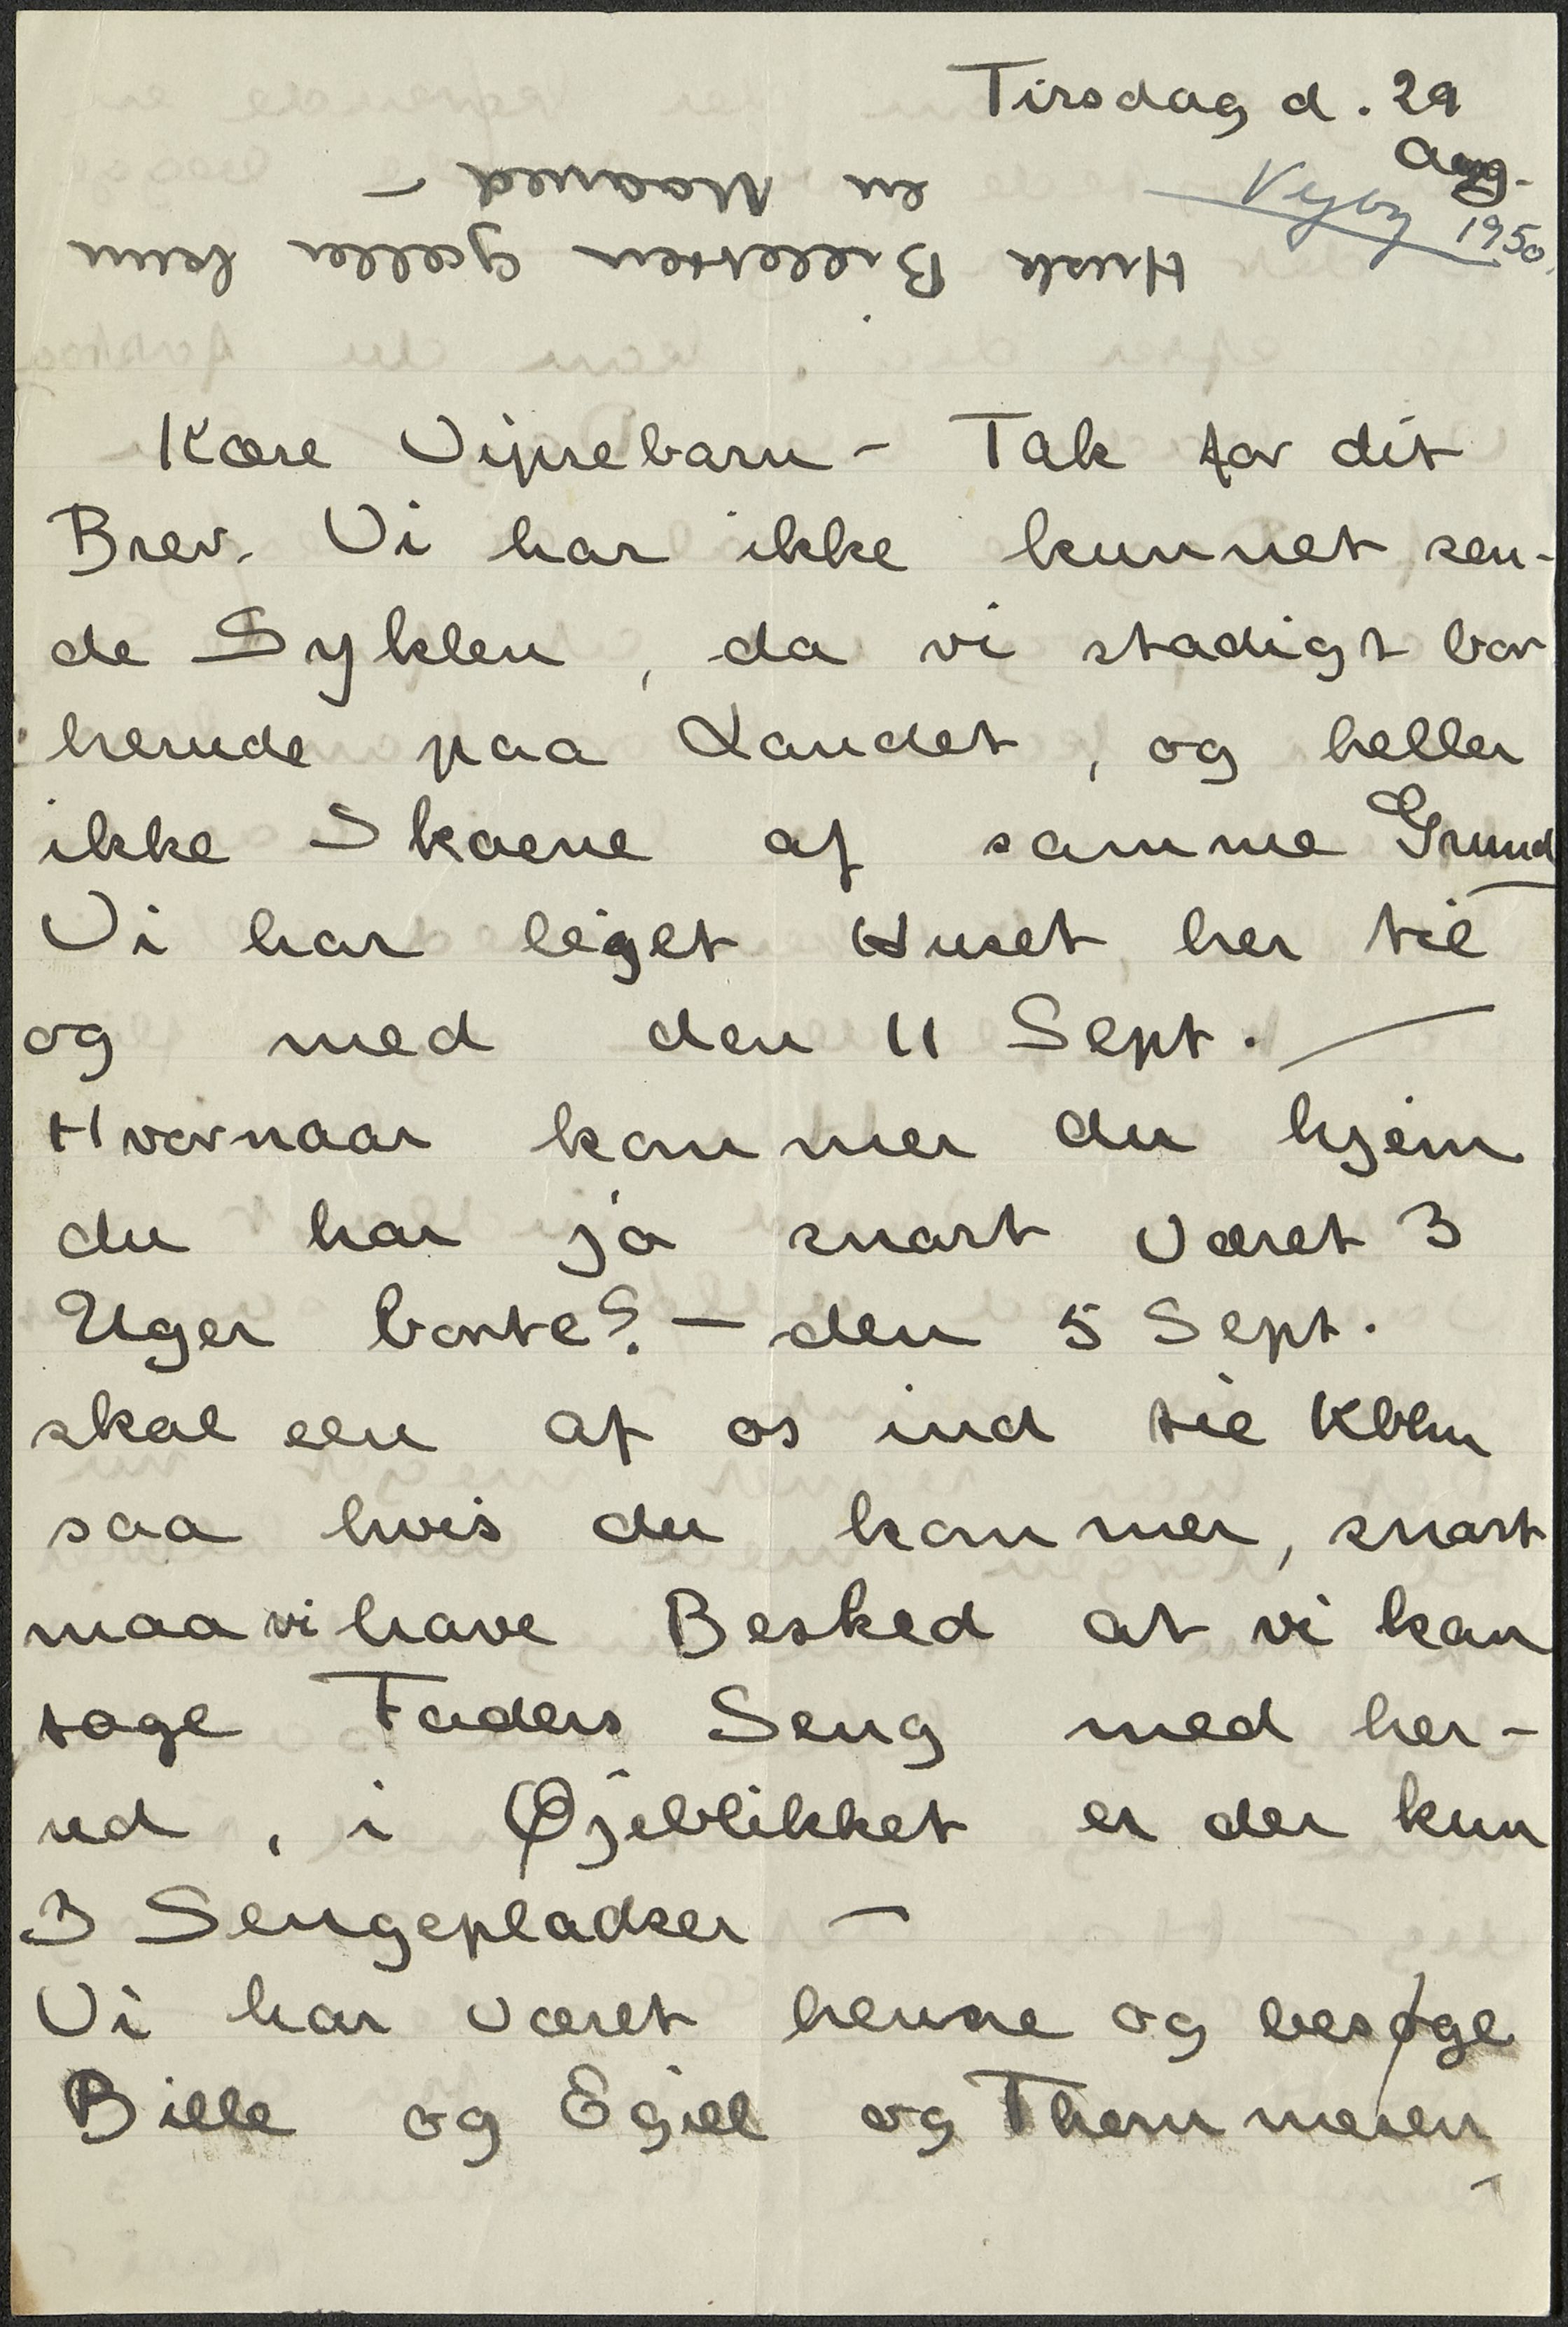 Tirsdag d. 29
Aug.
Vejby 1950.
Husk Billetten gælder kun
en Maaned –
Kære Vipsebarn – Tak for dit
Brev. Vi har ikke kunnet sen-
de Syklen, da vi stadigt bor
herude paa Landet, og heller
ikke Skoene af samme Grund
Vi har lejet Huset her til
og med den 11 Sept. —
Hvornaar kommer du hjem
du har jo snart været 3
Uger borte? – den 5 Sept.
skal een af os ind til Kbhn
saa hvis du kommer, snart
maa vi have Besked at vi kan
tage Faders Seng med her-
ud, i Øjeblikket er der kun
3 Sengepladser –
Vi har været henne og besøge
Bille og Egill og Thommesen –